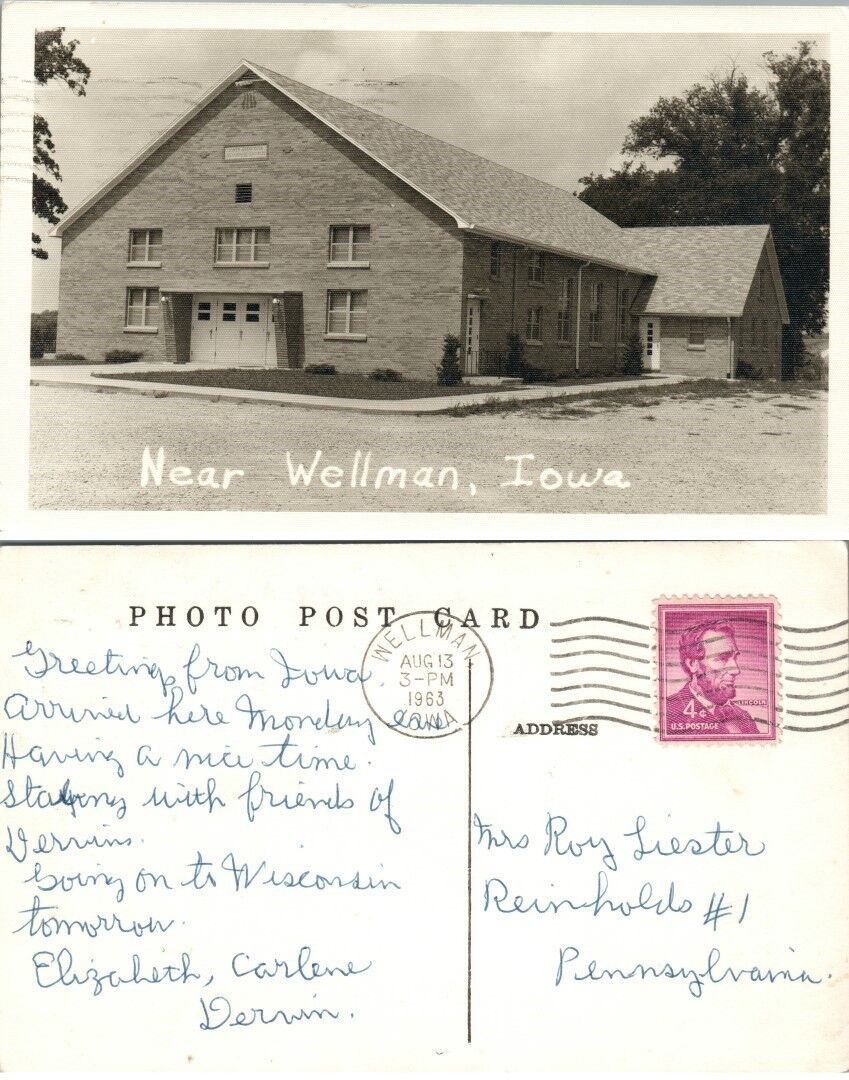 Near Wellman, Iowa
PHOTO POST CARD
WELLMAN
AUG 13
3-PM
1963
IOWA
LINCOLN
4¢
U.S. POSTAGE
Greetings from Iowa.
Arrived here Monday eve
Having a nice time.
Staying with friends of
Dervins.
Going on to Wisconsin
tomorrow.
Elizabeth, Carlene
Dervin.
ADDRESS
Mrs Roy Liester
Reinholds #1
Pennsylvania.